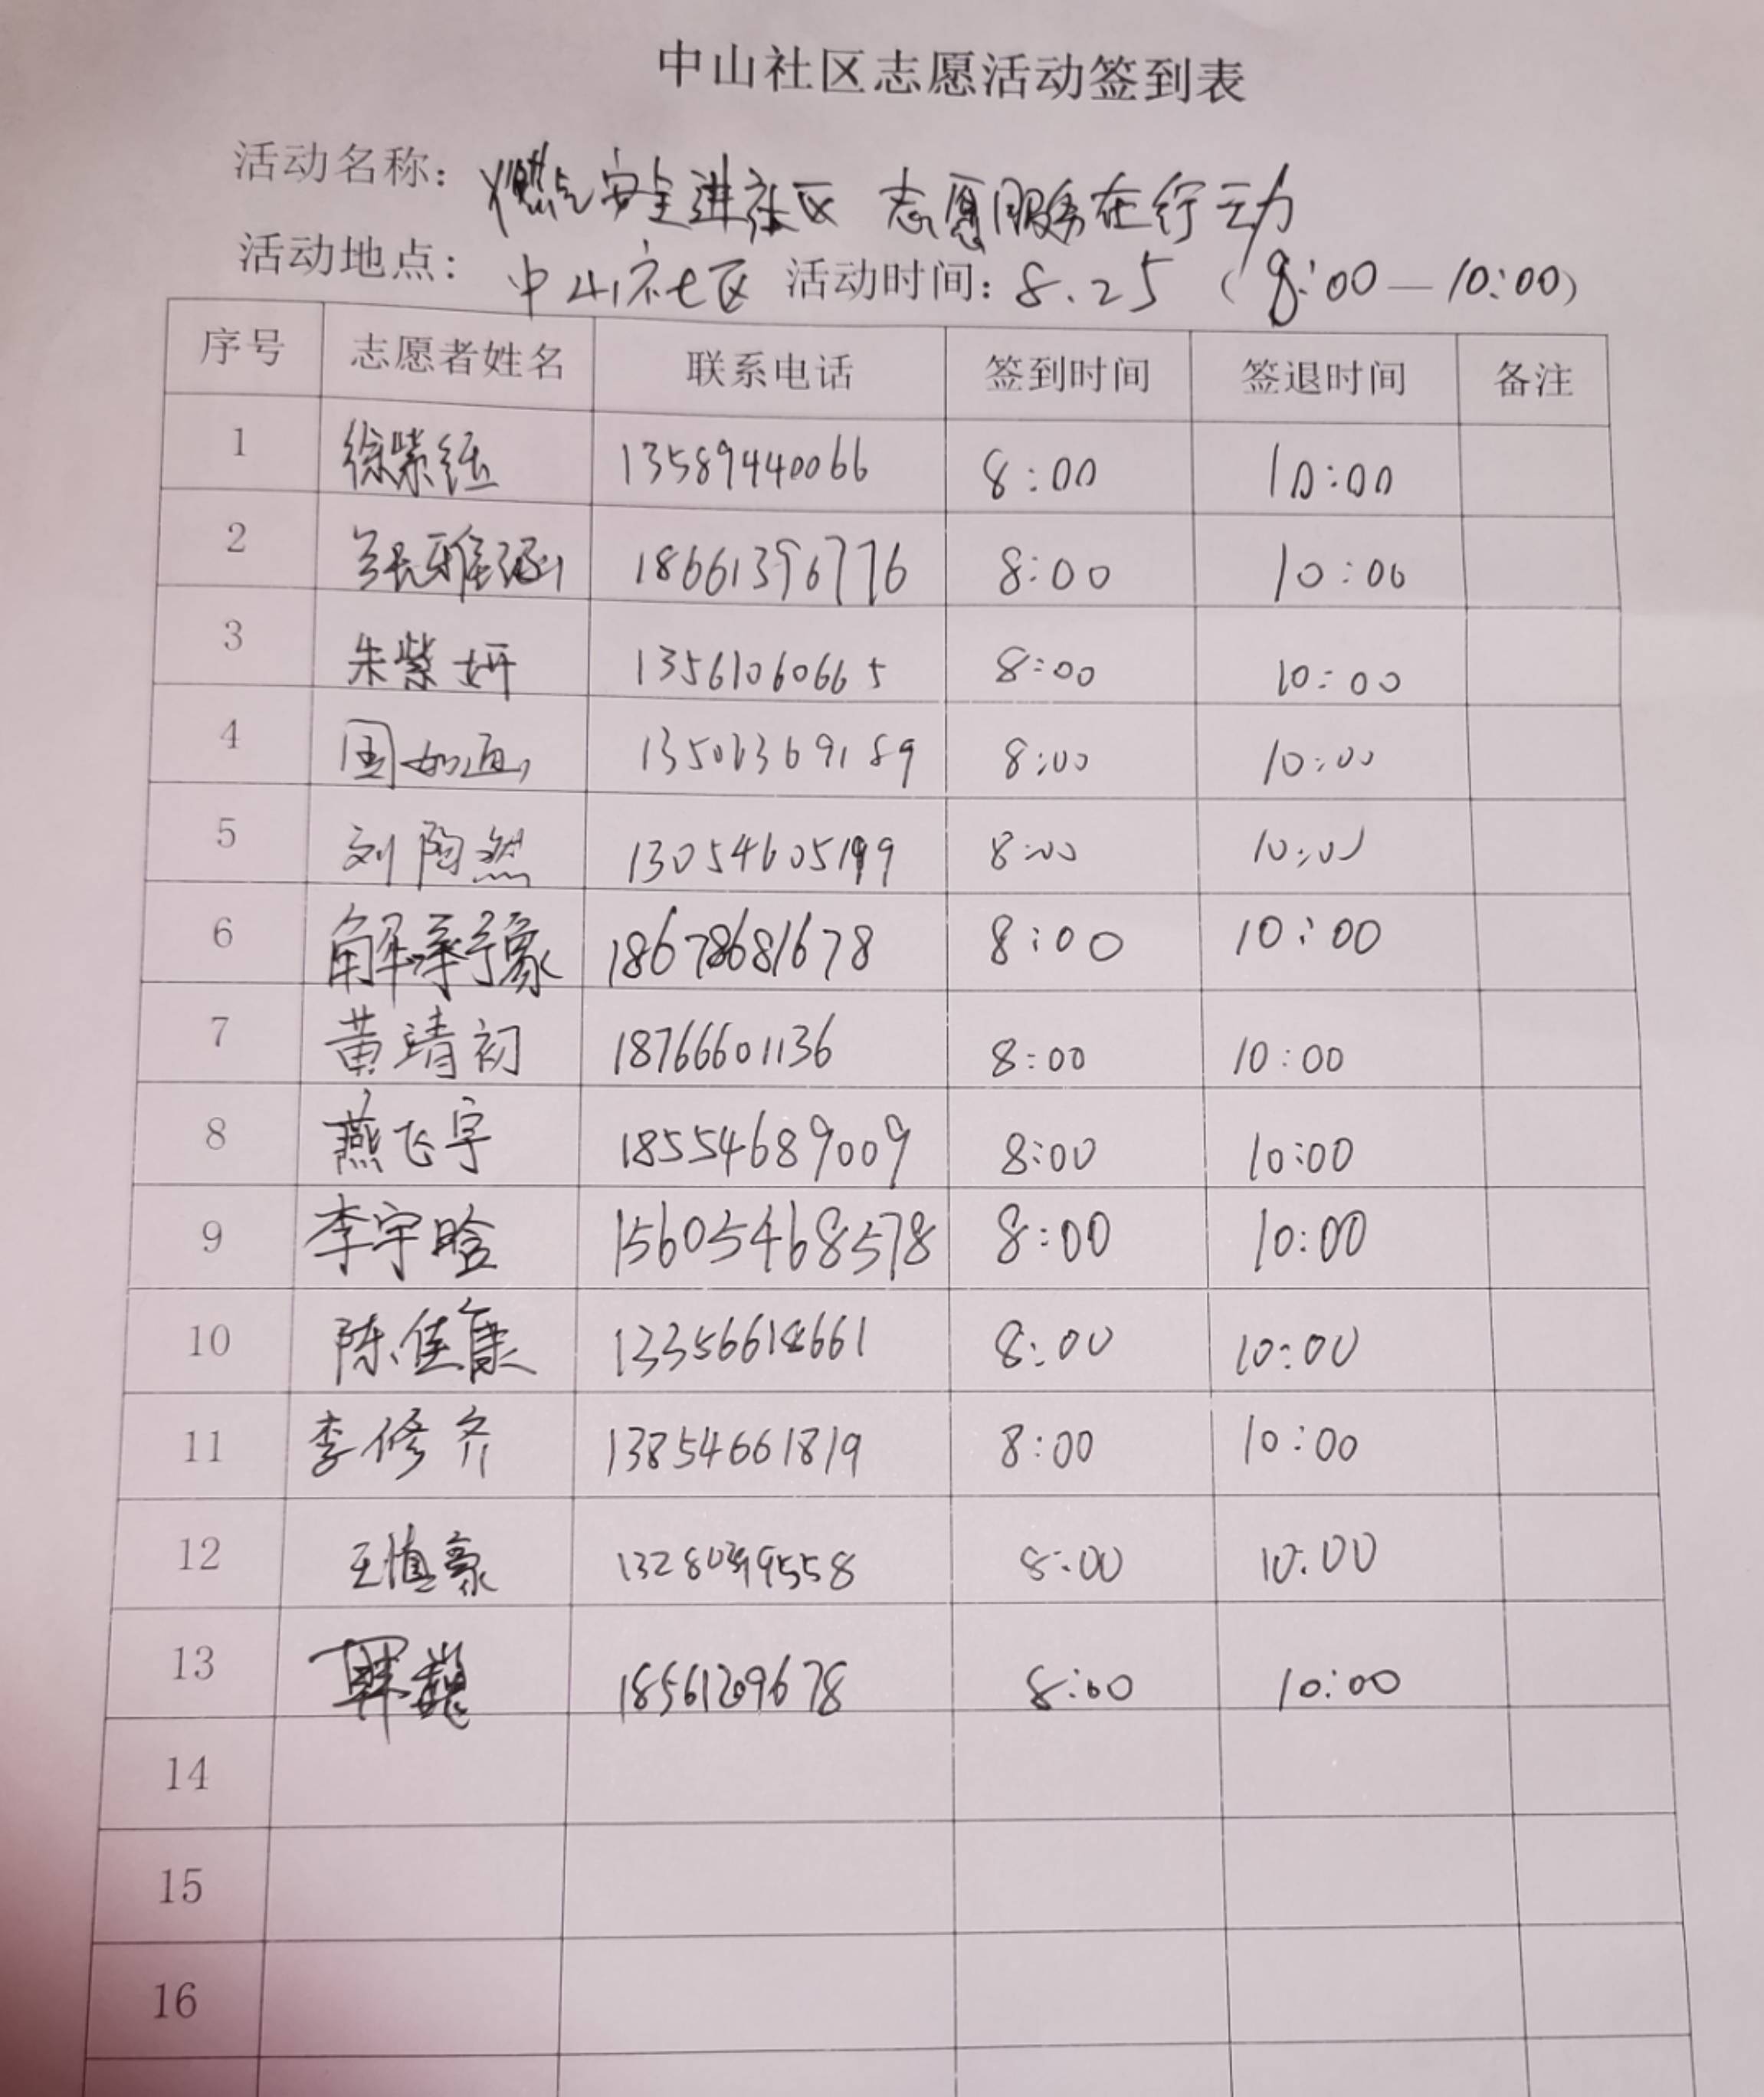 中山社区志愿活动签到表
活动名称：燃气安全进社区 志愿服务在行动
活动地点：中山社区 活动时间：8.25（8:00—10:00）
序号 志愿者姓名 联系电话 签到时间 签退时间 备注
1 徐紫钰 13589440066 8:00 10:00
2 张雅涵 18661396776 8:00 10:00
3 朱紫妍 13561060665 8:00 10:00
4 国如画 8:00 10:00
5 刘陶然 13054605199 8:00 10:00
6 解承豫 18678681678 8:00 10:00
7 黄靖初 18766601136 8:00 10:00
8 燕飞宇 18554689009 8:00 10:00
9 李宇晗 15605468578 8:00 10:00
10 陈佳康 13356618661 8:00 10:00
11 李修齐 13854661819 8:00 10:00
12 王慎豪 8:00 10:00
13 韩 18561209678 8:00 10:00
14
15
16